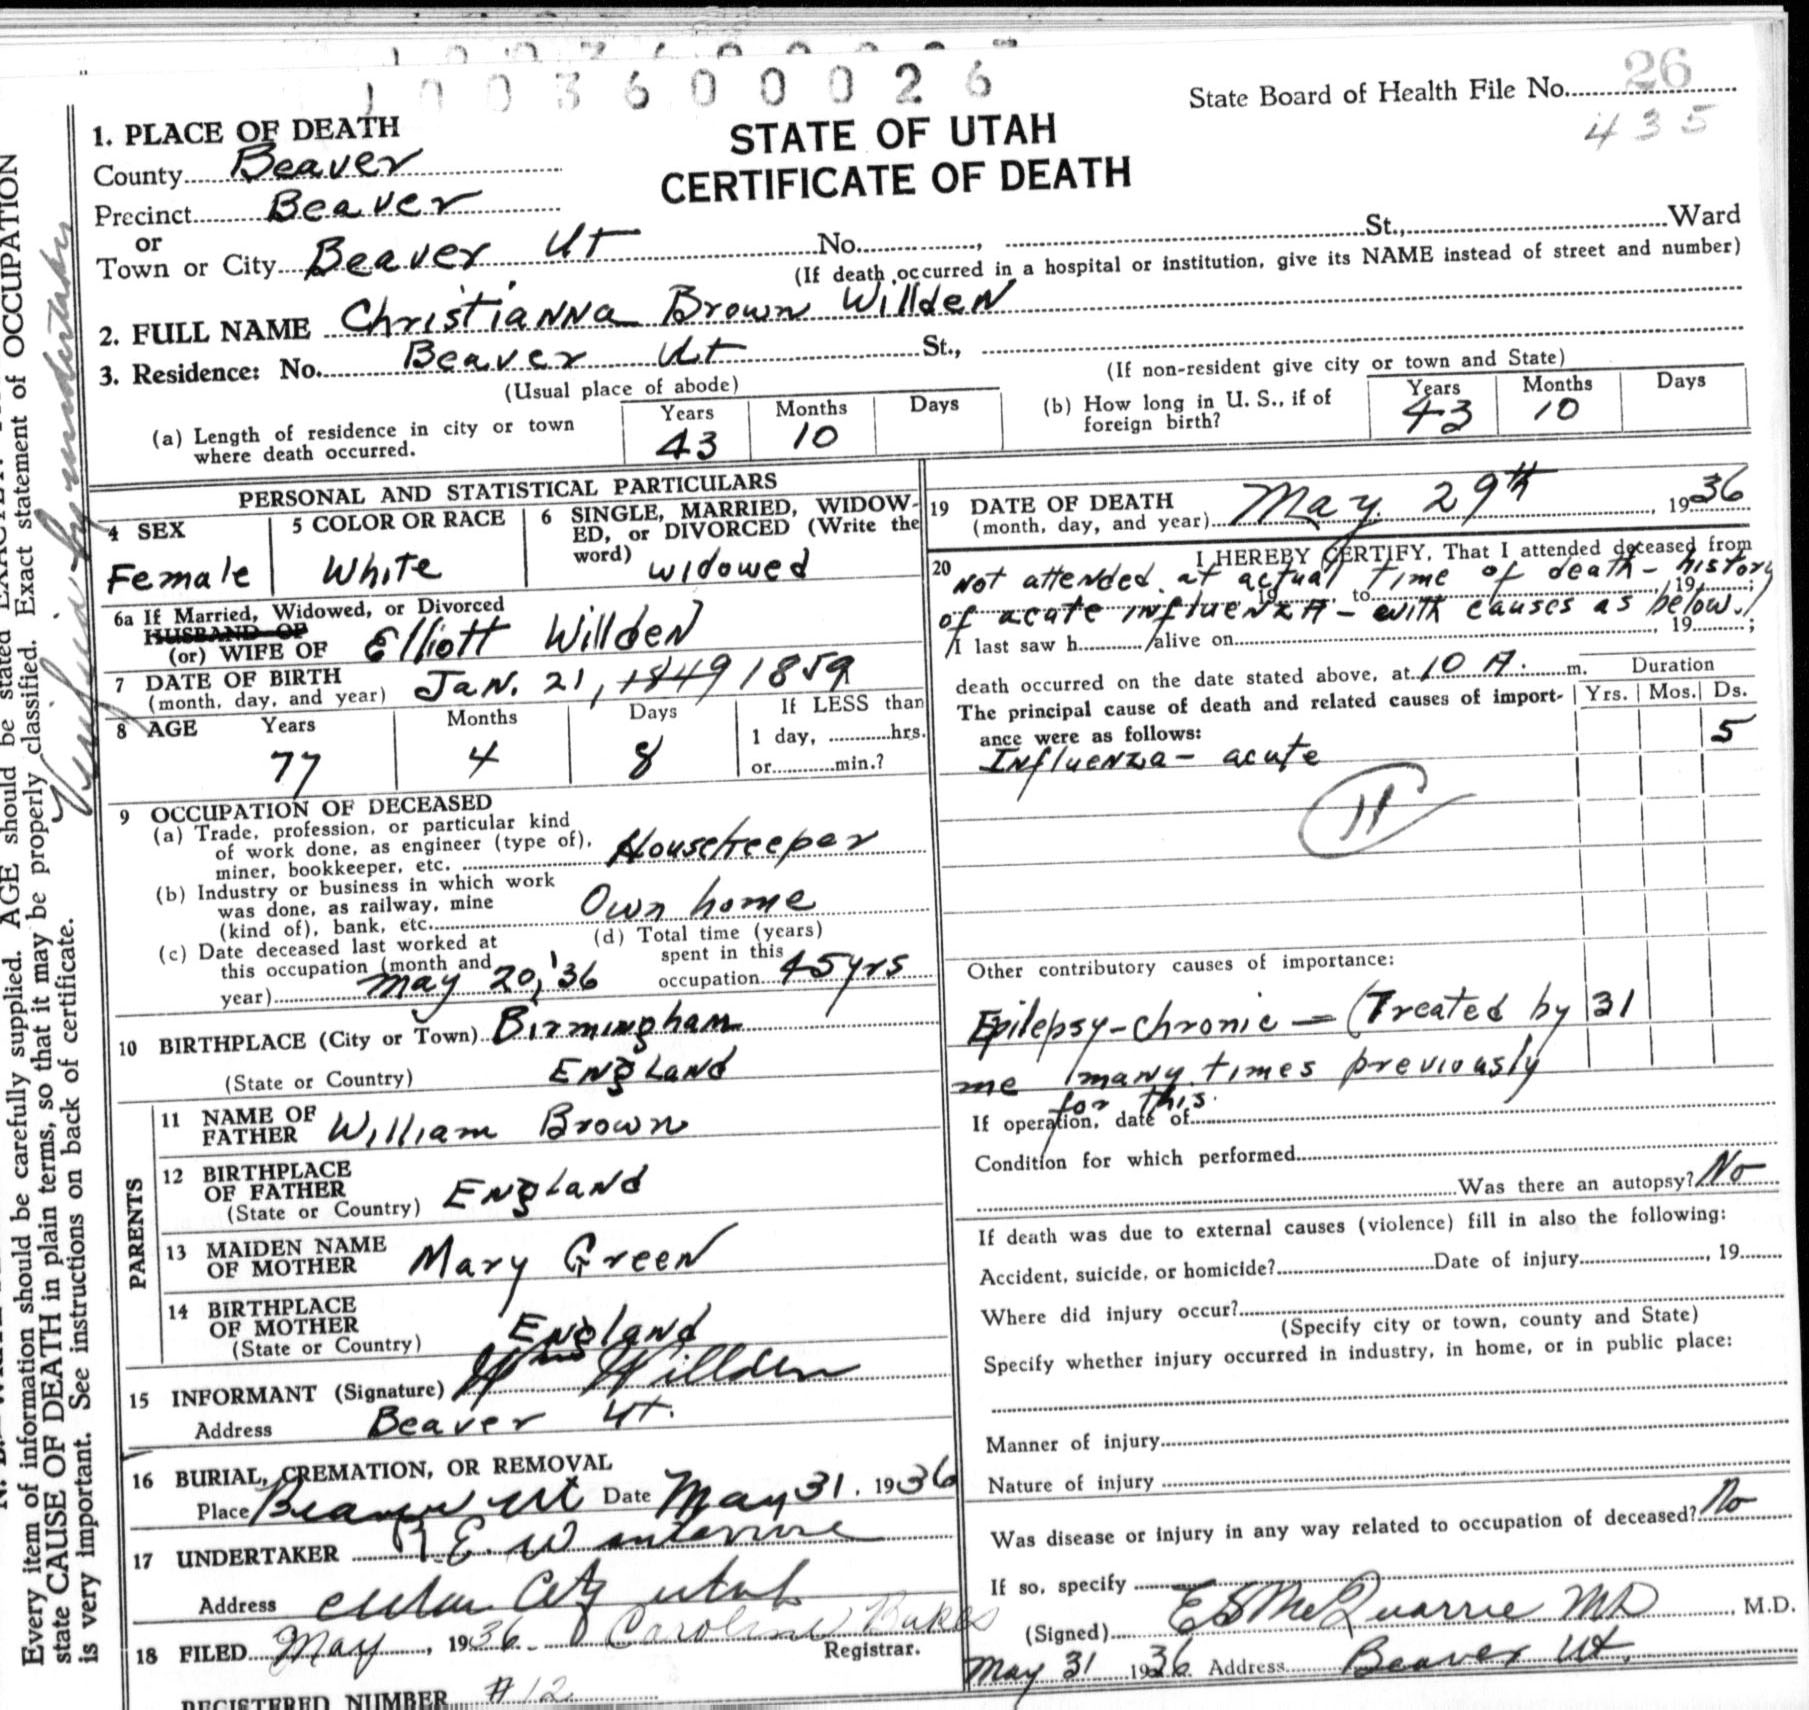 1003600026
State Board of Health File No. 26
435
STATE OF UTAH
CERTIFICATE OF DEATH
1. PLACE OF DEATH
County Beaver
Precinct Beaver
or
Town or City Beaver Ut No. , St., Ward
(If death occurred in a hospital or institution, give its NAME instead of street and number)
2. FULL NAME Christianna Brown Willden
3. Residence: No. Beaver Ut St.,
(Usual place of abode)
(If non-resident give city or town and State)
(a) Length of residence in city or town where death occurred.
Years 43 Months 10 Days
(b) How long in U. S., if of foreign birth?
Years 43 Months 10 Days
PERSONAL AND STATISTICAL PARTICULARS
4 SEX
Female
5 COLOR OR RACE
White
6 SINGLE, MARRIED, WIDOW-
ED, or DIVORCED (Write the
word) widowed
6a If Married, Widowed, or Divorced
HUSBAND OF
(or) WIFE OF Elliott Willden
7 DATE OF BIRTH
(month, day, and year) Jan. 21, 1849 1859
8 AGE Years 77 Months 4 Days 8
If LESS than
1 day, hrs.
or min.?
9 OCCUPATION OF DECEASED
(a) Trade, profession, or particular kind
of work done, as engineer (type of),
miner, bookkeeper, etc. Housekeeper
(b) Industry or business in which work
was done, as railway, mine
(kind of), bank, etc. Own home
(c) Date deceased last worked at
this occupation (month and
year) May 20, '36
(d) Total time (years)
spent in this
occupation 45 yrs
10 BIRTHPLACE (City or Town) Birmingham
(State or Country) England
PARENTS
11 NAME OF
FATHER William Brown
12 BIRTHPLACE
OF FATHER
(State or Country) England
13 MAIDEN NAME
OF MOTHER Mary Green
14 BIRTHPLACE
OF MOTHER
(State or Country) England
15 INFORMANT (Signature) Willden
Address Beaver Ut.
16 BURIAL, CREMATION, OR REMOVAL
Place Beaver Ut Date May 31, 1936
17 UNDERTAKER R.E.
Address Cedar City Utah
18 FILED May , 1936 Caroline
Registrar.
REGISTERED NUMBER #12
19 DATE OF DEATH
(month, day, and year) May 29th, 1936
20 I HEREBY CERTIFY, That I attended deceased from
Not attended at actual time of death - history
19 , to , 19 ;
of acute influenza - with causes as below.
I last saw h alive on , 19 ;
death occurred on the date stated above, at 10 A. m.
Duration
Yrs. Mos. Ds.
The principal cause of death and related causes of import-
ance were as follows: 5
Influenza - acute
11
Other contributory causes of importance:
Epilepsy - chronic - (Treated by 31
me many times previously
for this.
If operation, date of
Condition for which performed
Was there an autopsy? No
If death was due to external causes (violence) fill in also the following:
Accident, suicide, or homicide? Date of injury , 19
Where did injury occur?
(Specify city or town, county and State)
Specify whether injury occurred in industry, in home, or in public place:
Manner of injury
Nature of injury
Was disease or injury in any way related to occupation of deceased? No
If so, specify
(Signed) E S McQuarrie MD, M.D.
May 31 1936 Address Beaver Ut.
Every item of information should be carefully supplied. AGE should be stated EXACTLY.
state CAUSE OF DEATH in plain terms, so that it may be properly classified. Exact statement of OCCUPATION
is very important. See instructions on back of certificate.
Verified by undertaker